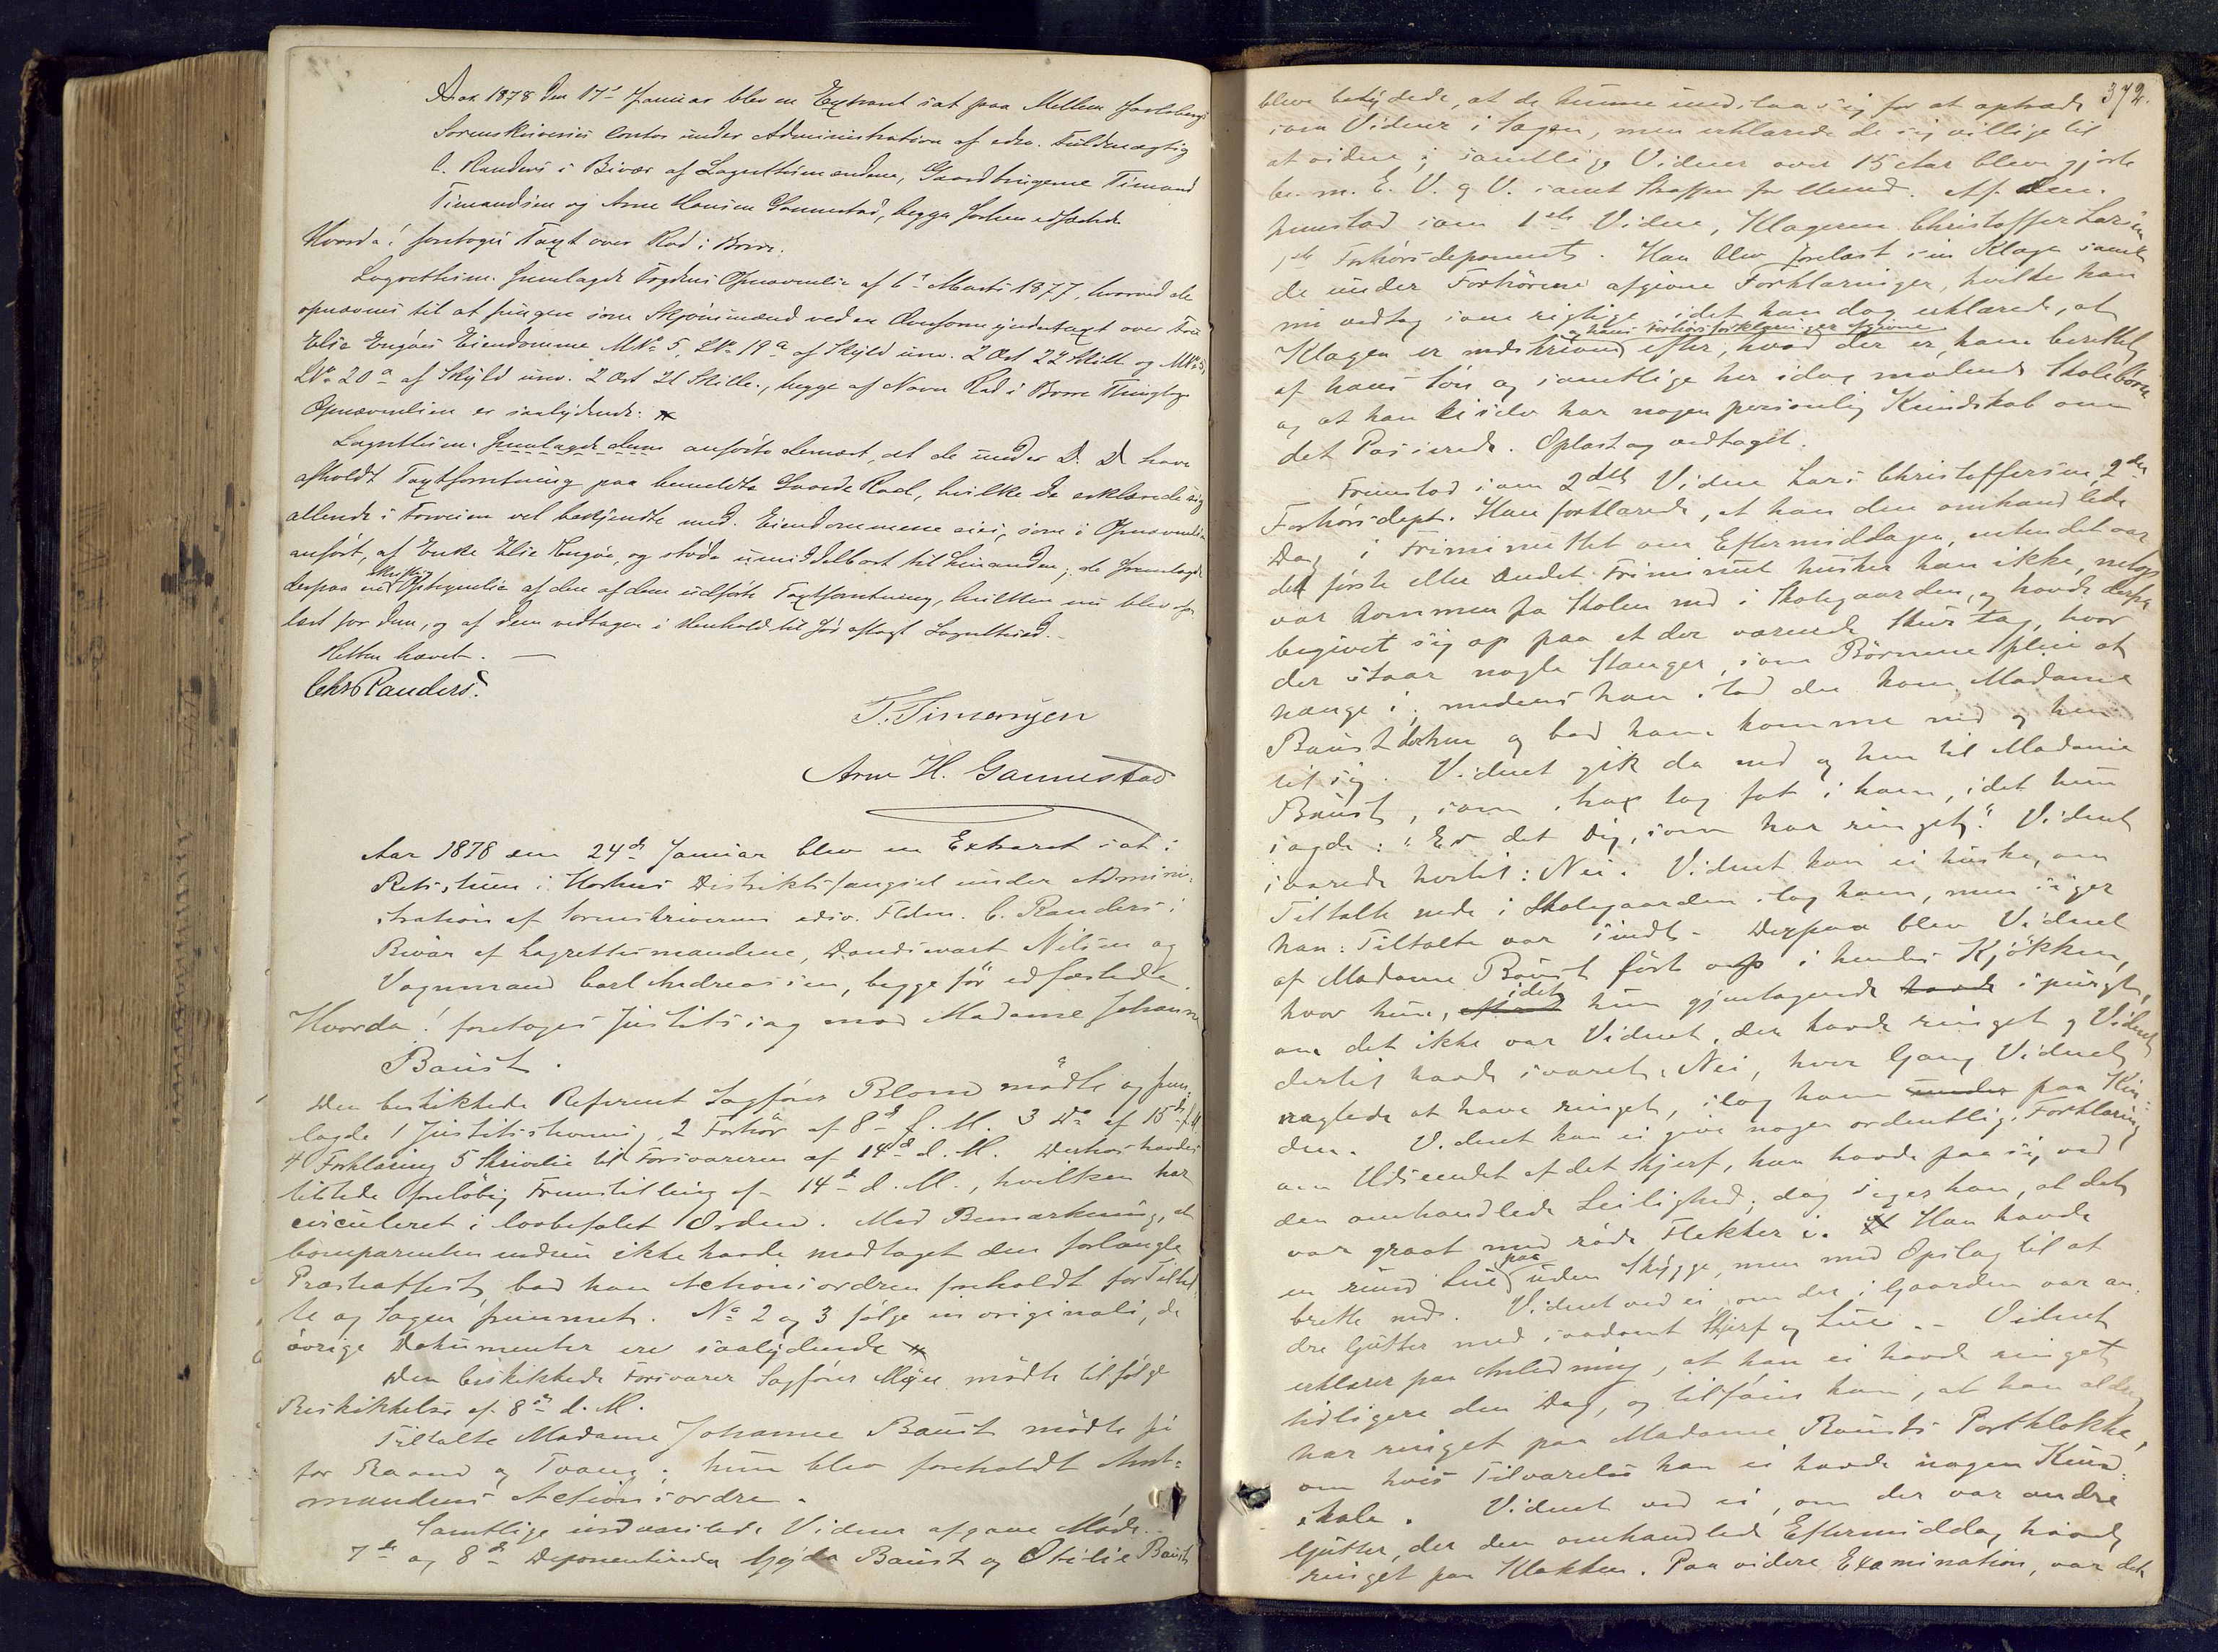 Aar 1878 den 17de Januar blev en Extraret sat paa Mellem Jarlsbergs
Sorenskriveries Contor under Administration af edsv. Fuldmægtig
C. Randers i Bivær af Lagrettesmændene, Gaardbrugerne Timand
Timandsen og Arne Hansen Gannestad, begge forhen edfæstede
Hvorda! foretoges Taxt over Rød i Borre.
Lagrettesm. fremlagde Fogdens Opnævnelse af 6te Marts 1877, hvorved de
opnævnes til at fungere som Skjønsmænd ved en Taxt over Fru
Elise Engøes Eiendomme M No 5, L No 19a af Skyld urev. 2 Ort 22 Skill. og M No 5,
L No 20a af Skyld urev. 2 Ort 21 Skill., begge af Navn Rød i Borre Thinglag
Opnævnelsen er saalydende: #
Lagrettesm. fremlagde denne anførte dernæst, at de under D. D. have
afholdt Taxtforretning paa bemeldte Gaarde Rød, hvilke de erklærede sig
allerede i Forveien vel bekjendte med. Eiendommene eies, som i Opnævnelsen
anført, af Enke Elise Engøe, og støde umiddelbart til hinanden; de fremlagde
derpaa en skriftlig Optegnelse af den af dem udførte Taxtforretning, hvilken nu blev op-
læst for dem, og af dem vedtagen i Henhold til før aflagt Lagrettesed.
Retten hævet. —
Chr Randers.
T. Timansen
Arne H. Gannestad
Aar 1878 den 24de Januar blev en Extraret sat i
Retsstuen i Hortens Distriktsfængsel under Admini-
stration af Sorenskriverens edsv. Fldm. C. Randers i
Bivær af Lagrettesmændene, Nilsen og
Vognmand Carl Andreassen, begge før edfæstede.
Hvorda! foretoges Justitssag mod Madame Johanne
Baust.
Den beskikkede Referent Sagfører Blom mødte og frem-
lagde 1 Justitsstevning, 2 Forhør af 8de f. M. 3 Do af 15de f. M.
4 Forklaring 5 Skrivelse til Forsvareren af 14de d. M. Derhos havdes
tilstede foreløbig Fremstilling af 14de d. M., hvilken har
circuleret i lovbefalet Orden. Med Bemærkning, at
Comparenten endnu ikke havde modtaget den forlangte
Præsteattest, bad han Actionsordren foreholdt for Tiltal-
te og Sagen fremmet. No 2 og 3 følge in originali, de
øvrige Dokumenter ere saalydende #
Den beskikkede Forsvarer Sagfører mødte tilfølge
Beskikkelse af 8de d. M.
Tiltalte Madame Johanne Baust mødte fri
for Baand og Tvang; hun blev foreholdt Amt-
mandens Actionsordre.
Samtlige indvarslede Vidner afgave Møde.
7de og 8de Deponentinde Gyda Baust og Otilie Baust
372.
bleve betydede, at de kunne undslaa sig for at optræde
som Vidner i Sagen, men erklærede de sig villige til
at vidne; samtlige Vidner over 15 Aar bleve gjorte
be. m. E. V. g V. samt Straffen for Meened. Af dem
fremstod som 1ste Vidne, Klageren Christoffer Larsen
1ste Forhørsdeponent. Han blev forelæst sin Klage samt
de under Forhørene afgivne Forklaringer, hvilke han
nu vedtog som rigtige idet han dog erklærede, at
og hans Forhørsforklaringer afgivne
Klagen er nedskreven efter, hvad der er ham berettet
af hans Søn og samtlige her idag mødende Skolebørn
og at han ei selv har nogen personlig Kundskab om
det Passerede. Oplæst og vedtaget.
Fremstod som 2det Vidne Lars Christoffersen, 2den
Forhørsdept. Han forklarede, at han den omhandlede
Dag i Friminuttet om Eftermiddagen, enten det var
det første eller andet Friminut husker han ikke, netop
var kommen fra Skolen ned i Skolegaarden, og havde derpaa
begivet sig op paa et der værende Skurtag, hvor
der staar nogle Stænger, som Børnene pleie at
hænge i; medens han stod der kom Madame
Baust derhen og bad ham komme ned og hen
til sig. Vidnet gik da ned og hen til Madame
Baust, som strax tog fat i ham, idet hun
sagde: "Er det Dig, som har ringet." Vidnet
svarede hertil: Nei. Vidnet kan ei huske, om
Tiltalte nede i Skolegaarden slog ham, men siger
han: Tiltalte var sindt. Derpaa blev Vidnet
af Madame Baust ført op i hendes Kjøkken,
hvor hun, idet hun gjentagende havde spurgt,
om det ikke var Vidnet, der havde ringet og Vidnet
dertil havde svaret: Nei, hver Gang Vidnet
nægtede at have ringet, slog ham under paa Kin-
den. Vidnet kan ei give nogen ordentlig Forklaring
om Udseendet af det Skjerf, han havde paa sig ved
den omhandlede Leilighed; dog siger han, at det
var graat med røde Flekker i. # Han havde
en rund Lue paa uden Skygge, men med Opslag til at
brette ned. Vidnet ved ei, om der i Gaarden var an-
dre Gutter med saadant Skjerf og Lue. – Vidnet
erklærer paa Anledning, at han ei havde ringet
tidligere den Dag, og tilføier han, at han aldrig
har ringet paa Madame Bausts Portklokke,
om hvis Tilværelse han ei havde nogen Kund-
skab. Vidnet ved ei, om der var andre
Gutter, der den omhandlede Eftermiddag havde
ringet paa Klokken. Paa videre Examination, var det